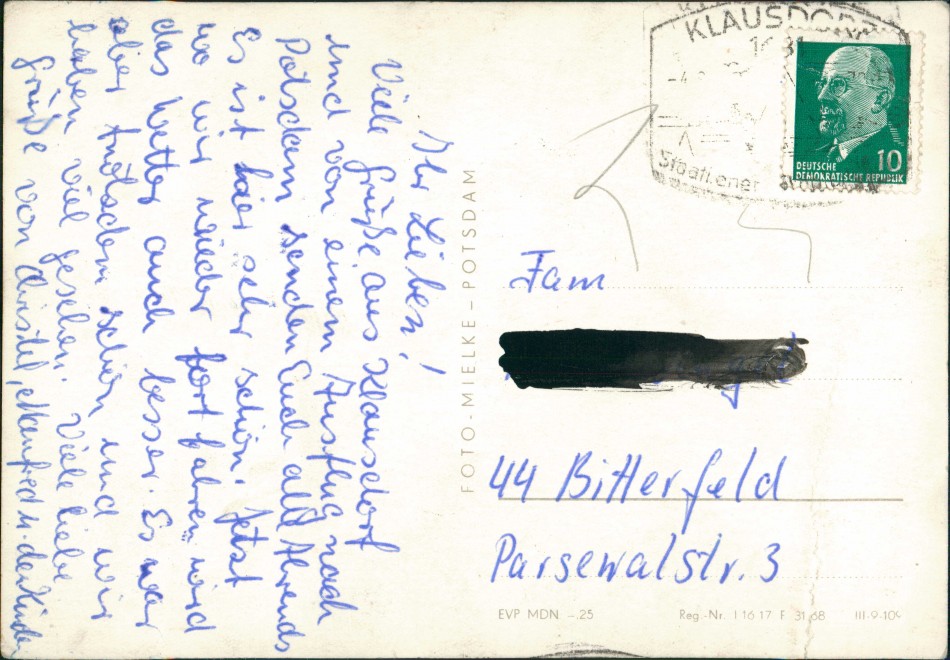 Ihr Lieben!
Viele Grüße aus Klausdorf
und von einem Ausflug nach
Potsdam senden Euch alle Ahrends
Es ist hier sehr schön. Jetzt
wo wir wieder fortfahren wird
das Wetter auch besser. Es war
aber trotzdem schön und wir
haben viel gesehen. Viele liebe
Grüße von Christel, Manfred u. der Kinder
FOTO-MIELKE – POTSDAM
KLAUSDORF
Staatl. ener
DEUTSCHE
DEMOKRATISCHE REPUBLIK
10
Fam
44 Bitterfeld
Parsewalstr. 3
EVP MDN –.25
Reg.-Nr. I 16 17 F 31 68
III-9-109